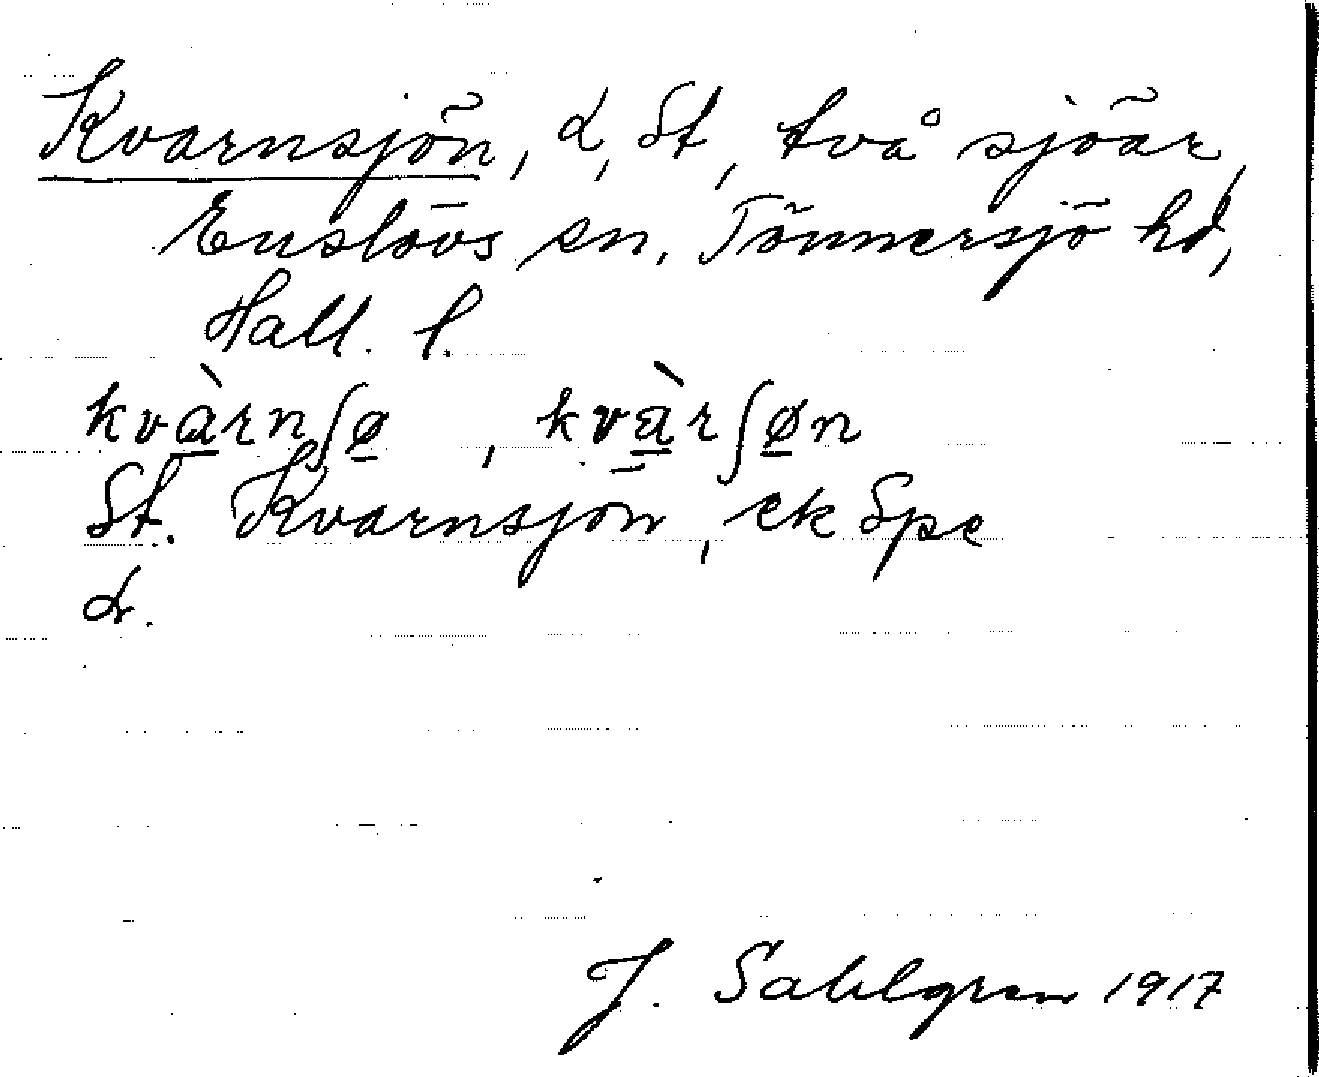 Kvarnsjön, L, St, två sjöar,
Enslövs sn. Tönnersjö hd,
Hall. l.
kvàrnʃø , kvàrʃøn
St. Kvarnsjön, ek Spe
L.
J. Sahlgren 1917